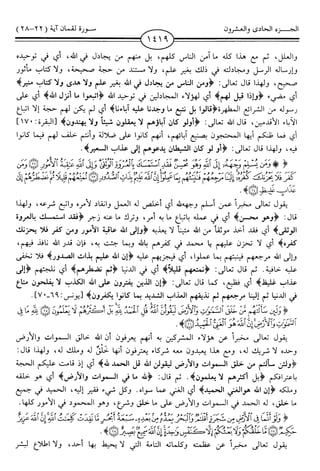 الجـــزء الحادي والعشرون
سـورة لقمان آية (٢٢-٢٨)
١٤١٩
والعلل، ثم مع هذا كله ما آمن الناس كلهم، بل منهم من يجادل في الله، أي في توحيده
وإرساله الرسل ومجادلته في ذلك بغير علم، ولا مستند من حجة صحيحة، ولا كتاب مأثور
صحيح، ولهذا قال تعالى: ﴿ومن الناس من يجادل في الله بغير علم ولا هدى ولا كتاب منير﴾
أي مضيء ﴿وإذا قيل لهم﴾ أي لهؤلاء المجادلين في توحيد الله ﴿اتبعوا ما أنزل الله﴾ أي على
رسوله من الشرائع المطهرة ﴿قالوا بل نتبع ما وجدنا عليه آباءنا﴾ أي لم يكن لهم حجة إلا اتباع
الآباء الأقدمين، قال الله تعالى: ﴿أولو كان آباؤهم لا يعقلون شيئاً ولا يهتدون﴾ [البقرة: ١٧٠]
أي فما ظنكم أيها المحتجون بصنيع آبائهم، أنهم كانوا على ضلالة وأنتم خلف لهم فيما كانوا
فيه، ولهذا قال تعالى: ﴿أو لو كان الشيطان يدعوهم إلى عذاب السعير﴾.
﴿ ۞ وَمَن يُسْلِمْ وَجْهَهُ إِلَى اللَّهِ وَهُوَ مُحْسِنٌ فَقَدِ اسْتَمْسَكَ بِالْعُرْوَةِ الْوُثْقَىٰ وَإِلَى اللَّهِ عَاقِبَةُ الْأُمُورِ ۝
وَمَن كَفَرَ فَلَا يَحْزُنكَ كُفْرُهُ إِلَيْنَا مَرْجِعُهُمْ فَنُنَبِّئُهُم بِمَا عَمِلُوا إِنَّ اللَّهَ عَلِيمٌ بِذَاتِ الصُّدُورِ ۝ نُمَتِّعُهُمْ قَلِيلًا ثُمَّ نَضْطَرُّهُمْ إِلَىٰ
عَذَابٍ غَلِيظٍ ۝﴾
يقول تعالى مخبراً عمن أسلم وجهه لله أي أخلص له العمل وانقاد لأمره واتبع شرعه، ولهذا
قال: ﴿وهو محسن﴾ أي في عمله باتباع ما به أمر، وترك ما عنه زجر ﴿فقد استمسك بالعروة
الوثقى﴾ أي فقد أخذ موثقاً من الله متيناً لا يعذبه ﴿وإلى الله عاقبة الأمور ومن كفر فلا يحزنك
كفره﴾ أي لا تحزن عليهم يا محمد في كفرهم بالله وبما جئت به، فإن قدر الله نافذ فيهم،
وإلى الله مرجعهم فينبئهم بما عملوا، أي فيجزيهم عليه ﴿إن الله عليم بذات الصدور﴾ فلا تخفى
عليه خافية. ثم قال تعالى: ﴿نمتعهم قليلاً﴾ أي في الدنيا ﴿ثم نضطرهم﴾ أي نلجئهم ﴿إلى
عذاب غليظ﴾ أي فظيع، كما قال تعالى: ﴿إن الذين يفترون على الله الكذب لا يفلحون متاع
في الدنيا ثم إلينا مرجعهم ثم نذيقهم العذاب الشديد بما كانوا يكفرون﴾ [يونس: ٦٩-٧٠].
﴿ وَلَئِن سَأَلْتَهُم مَّنْ خَلَقَ السَّمَاوَاتِ وَالْأَرْضَ لَيَقُولُنَّ اللَّهُ قُلِ الْحَمْدُ لِلَّهِ بَلْ أَكْثَرُهُمْ لَا يَعْلَمُونَ ۝ لِلَّهِ مَا فِي
السَّمَاوَاتِ وَالْأَرْضِ إِنَّ اللَّهَ هُوَ الْغَنِيُّ الْحَمِيدُ ۝﴾
يقول تعالى مخبراً عن هؤلاء المشركين به أنهم يعرفون أن الله خالق السموات والأرض
وحده لا شريك له، ومع هذا يعبدون معه شركاء يعترفون أنها خلق له وملك له، ولهذا قال:
﴿ولئن سألتهم من خلق السموات والأرض ليقولن الله قل الحمد لله﴾ أي إذ قامت عليكم الحجة
باعترافكم ﴿بل أكثرهم لا يعلمون﴾. ثم قال: ﴿لله ما في السموات والأرض﴾ أي هو خلقه
وملكه ﴿إن الله هو الغني الحميد﴾ أي الغني عما سواه. وكل شيء فقير إليه، الحميد في جميع
ما خلق، له الحمد في السموات والأرض على ما خلق وشرع، وهو المحمود في الأمور كلها.
﴿ وَلَوْ أَنَّمَا فِي الْأَرْضِ مِن شَجَرَةٍ أَقْلَامٌ وَالْبَحْرُ يَمُدُّهُ مِن بَعْدِهِ سَبْعَةُ أَبْحُرٍ مَّا نَفِدَتْ كَلِمَاتُ اللَّهِ إِنَّ اللَّهَ عَزِيزٌ
حَكِيمٌ ۝ مَّا خَلْقُكُمْ وَلَا بَعْثُكُمْ إِلَّا كَنَفْسٍ وَاحِدَةٍ إِنَّ اللَّهَ سَمِيعٌ بَصِيرٌ ۝﴾.
يقول تعالى مخبراً عن عظمته وكلماته التامة التي لا يحيط بها أحد، ولا اطلاع لبشر